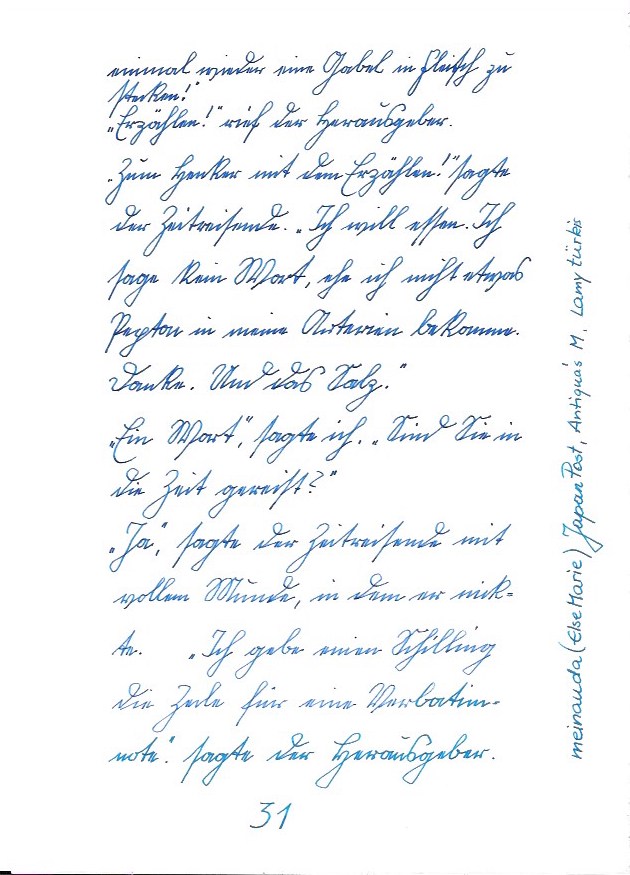 einmal wieder eine Gabel in Fleisch zu
stecken!"
„Erzählen!" rief der Herausgeber.
„Zum Henker mit dem Erzählen!" sagte
der Zeitreisende. „Ich will essen. Ich
sage kein Wort, ehe ich nicht etwas
Pepton in meine Arterien bekomme.
Danke. Und das Salz."
„Ein Wort", sagte ich. „Sind Sie in
die Zeit gereist?"
„Ja", sagte der Zeitreisende mit
vollem Munde, in dem er nick=
te. „Ich gebe einen Schilling
die Zeile für eine Verbatim-
note". sagte der Herausgeber.
31
meinauda (Else Marie) Japan Post, Antiqua's M, Lamy türkis